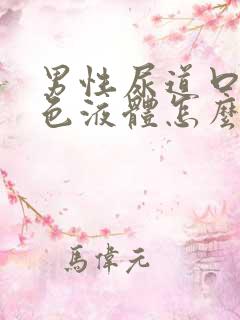 男性尿道口
色液體怎麼
馬偉元